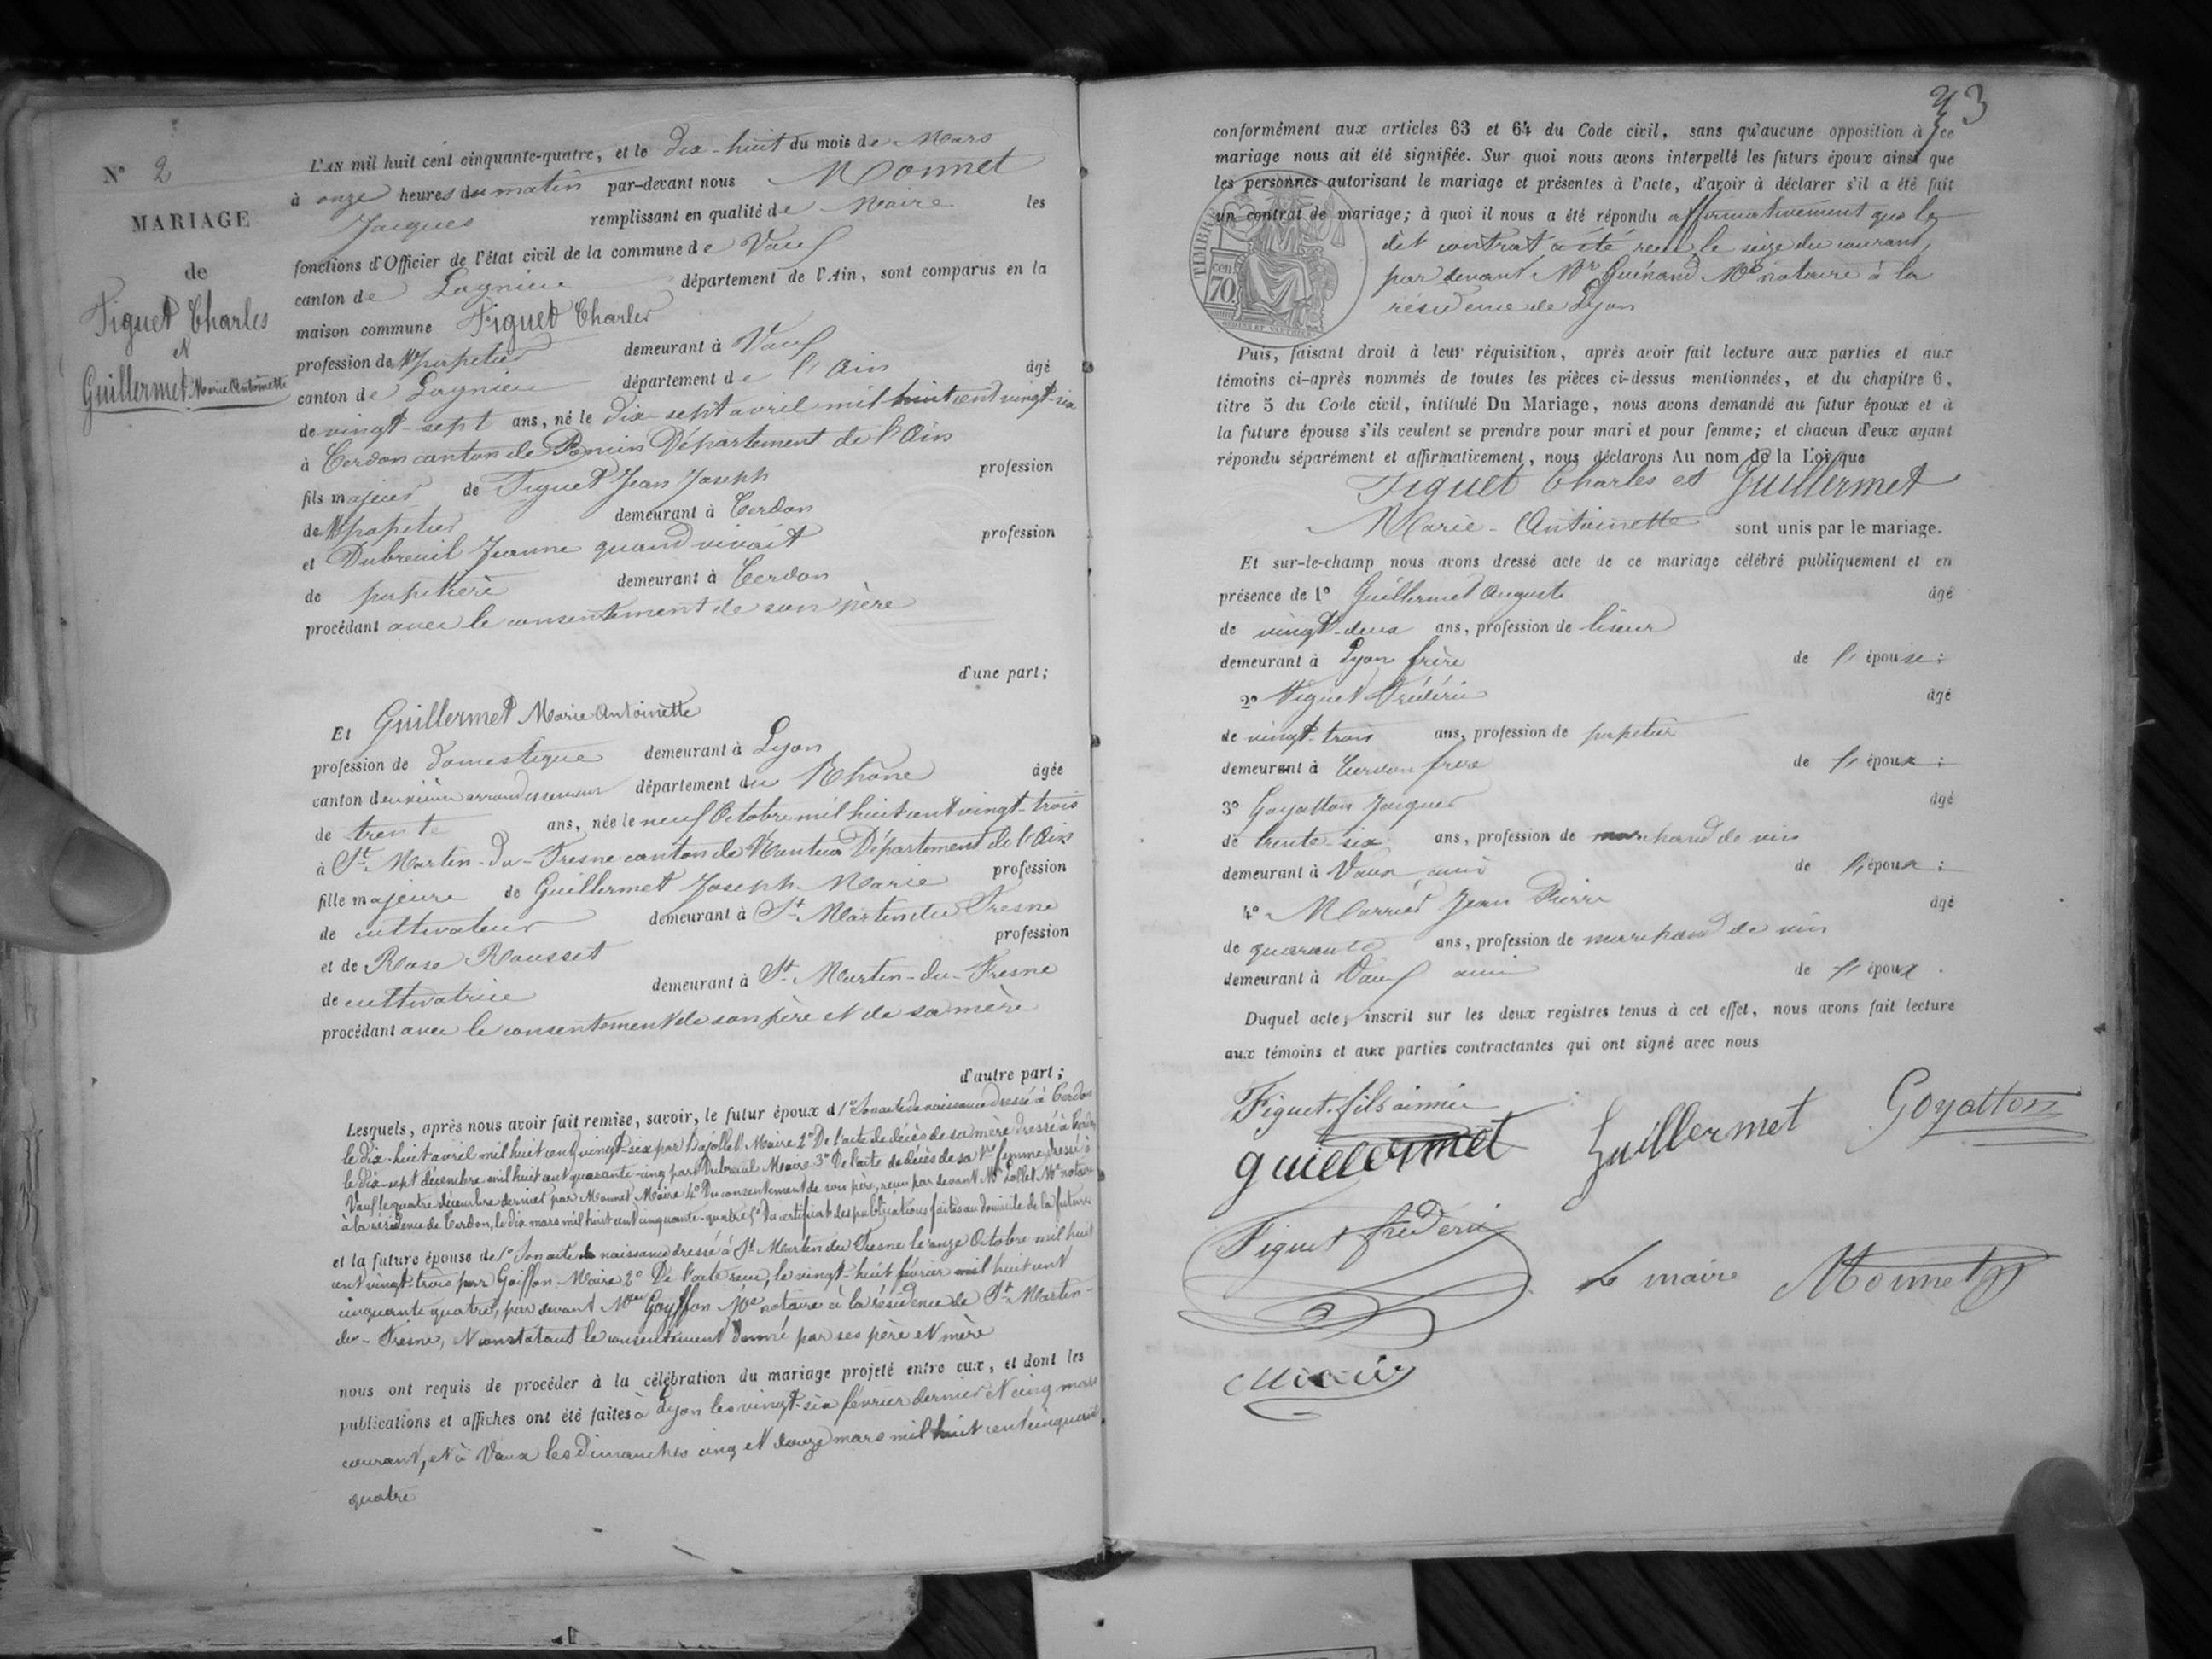 N° 2
MARIAGE
de
Figuet Charles
et
Guillermet Marie Antoinette
L'AN mil huit cent cinquante-quatre, et le dix-huit du mois de Mars
à onze heures du matin par-devant nous Monnet
Jacques remplissant en qualité de Maire les
fonctions d'Officier de l'état civil de la commune de Vaux
canton de Lagnieu département de l'Ain, sont comparus en la
maison commune Figuet Charles
profession de Md papetier demeurant à Vaux
canton de Lagnieu département de l'Ain âgé
de vingt-sept ans, né le dix-sept avril mil huit cent vingt-six
à Cerdon canton de Poncin Département de l'Ain
fils majeur de Figuet Jean Joseph profession
de Md papetier demeurant à Cerdon
et Dubreuil Jeanne quand vivait profession
de papetière demeurant à Cerdon
procédant avec le consentement de son père
d'une part;
Et Guillermet Marie Antoinette
profession de domestique demeurant à Lyon
canton deuxième arrondissement département du Rhône âgée
de trente ans, née le neuf Octobre mil huit cent vingt-trois
à St Martin-du-Fresne canton de Nantua Département de l'Ain
fille majeure de Guillermet Joseph-Marie profession
de cultivateur demeurant à St Martin du Fresne
et de Rose Rousset profession
de cultivatrice demeurant à St Martin-du-Fresne
procédant avec le consentement de son père et de sa mère
d'autre part;
Lesquels, après nous avoir fait remise, savoir, le futur époux d 1° Son acte de naissance dressé à Cerdon
le dix-huit avril mil huit cent vingt-six par Bajollet Maire 2° De l'acte de décès de sa mère dressé à Cerdon
le dix-sept décembre mil huit cent quarante-cinq par Dubreuil Maire 3° De l'acte de décès de sa 1re femme dressé à
Vaux le quatre décembre dernier par Monnet Maire 4° Du consentement de son père, reçu par devant Me Lollet Me notaire
à la résidence de Cerdon, le dix mars mil huit cent cinquante-quatre 5° Du certificat des publications faites au domicile de la future
et la future épouse de 1° Son acte de naissance dressé à St Martin du Fresne le onze Octobre mil huit
cent vingt-trois par Goiffon Maire 2° De l'acte reçu, le vingt-huit février mil huit cent
cinquante quatre, par devant Goyffon Me notaire à la résidence de St Martin-
du-Fresne, constatant le consentement donné par ses père et mère
nous ont requis de procéder à la célébration du mariage projeté entre eux, et dont les
publications et affiches ont été faites à Lyon les vingt-six février dernier et cinq mars
courant, et à Vaux les dimanches cinq et douze mars mil huit cent cinquante
quatre
conformément aux articles 63 et 64 du Code civil, sans qu'aucune opposition à ce
mariage nous ait été signifiée. Sur quoi nous avons interpellé les futurs époux ainsi que
les personnes autorisant le mariage et présentes à l'acte, d'avoir à déclarer s'il a été fait
un contrat de mariage; à quoi il nous a été répondu affirmativement que le
dit contrat a été reçu le seize du courant,
par devant Mr Guénand Me notaire à la
résidence de Lyon
TIMBRE
cen
70.
Puis, faisant droit à leur réquisition, après avoir fait lecture aux parties et aux
témoins ci-après nommés de toutes les pièces ci-dessus mentionnées, et du chapitre 6,
titre 5 du Code civil, intitulé Du Mariage, nous avons demandé au futur époux et à
la future épouse s'ils veulent se prendre pour mari et pour femme; et chacun d'eux ayant
répondu séparément et affirmativement, nous déclarons Au nom de la Loi que
Figuet Charles et Guillermet
Marie-Antoinette sont unis par le mariage.
Et sur-le-champ nous avons dressé acte de ce mariage célébré publiquement et en
présence de 1° Guillermet Auguste âgé
de vingt-deux ans, profession de liseur
demeurant à Lyon frère de l'épouse;
2° Figuet Frédéric âgé
de vingt-trois ans, profession de papetier
demeurant à Cerdon frère de l'époux;
3° Goyatton Jacques âgé
de trente-six ans, profession de marchand de vin
demeurant à Vaux ami de l'époux;
4° Marrier Jean Pierre âgé
de quarante ans, profession de marchand de vin
demeurant à Vaux ami de l'époux.
Duquel acte, inscrit sur les deux registres tenus à cet effet, nous avons fait lecture
aux témoins et aux parties contractantes qui ont signé avec nous
Figuet fils ainnée
guillermet Guillermet Goyatton
Figuet frédéric
Le maire Monnet